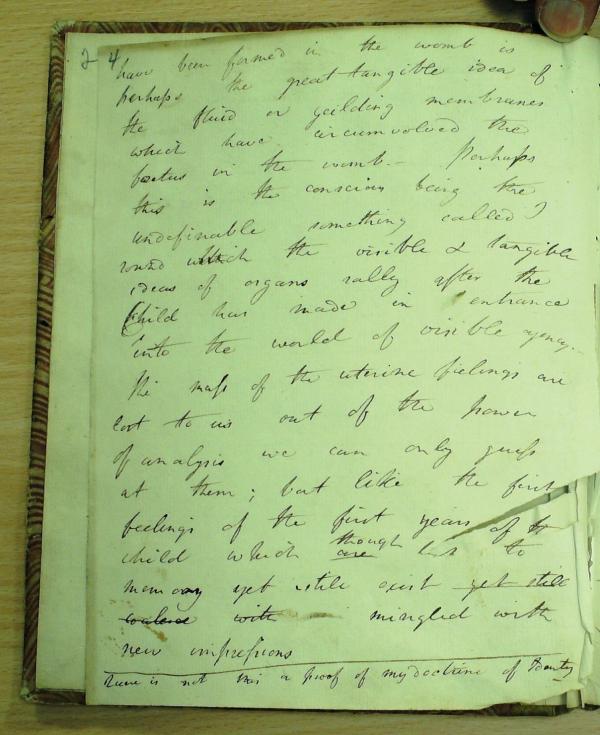 2 4
have been formed in the womb is
perhaps the great tangible idea of
the fluid or yeilding membranes
which have circumvolved the
foetus in the womb. - Perhaps
this is the conscious being the
undefinable something called I
round which the visible & tangible
ideas of organs rally after the
Child has made in entrance
into the world of visible agency.
The mass of the uterine feelings are
lost to us out of the power
of analysis we can only guess
at them; but like the first
feelings of the first years of
child which though are lost to
memory yet still exist yet still
coalesce with mingled with
new impressions
there is not this a proof of my doctrine of Identity